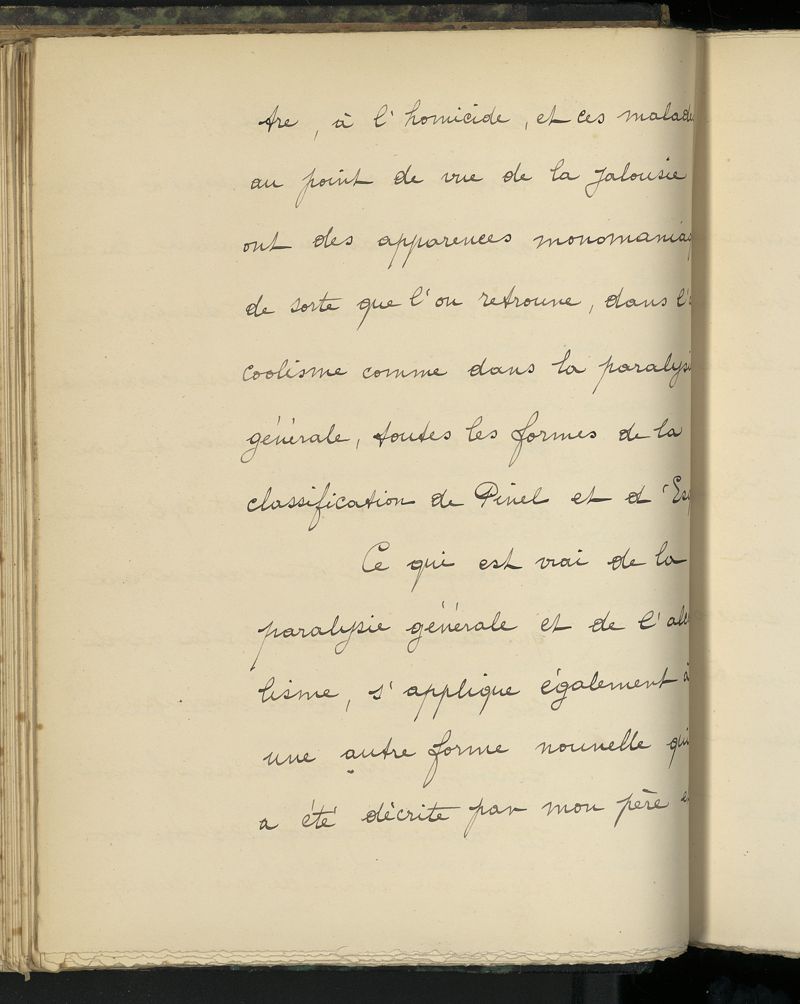 tre, à l'homicide, et ces malad
au point de vue de la jalousie
ont des apparences monomania
de sorte que l'on retrouve, dans l'
coolisme comme dans la paralysi
générale, toutes les formes de la
classification de Pinel et d'Es
Ce qui est vrai de la
paralysie générale et de l'alc
lisme, s'applique également à
une autre forme nouvelle qui
a été décrite par mon père e